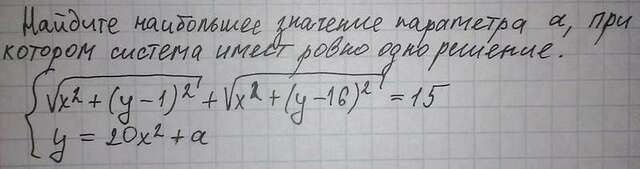 Найдите наибольшее значение параметра a, при
котором система имеет ровно одно решение.
√x² + (y-1)² + √x² + (y-16)² = 15
y = 20x² + a